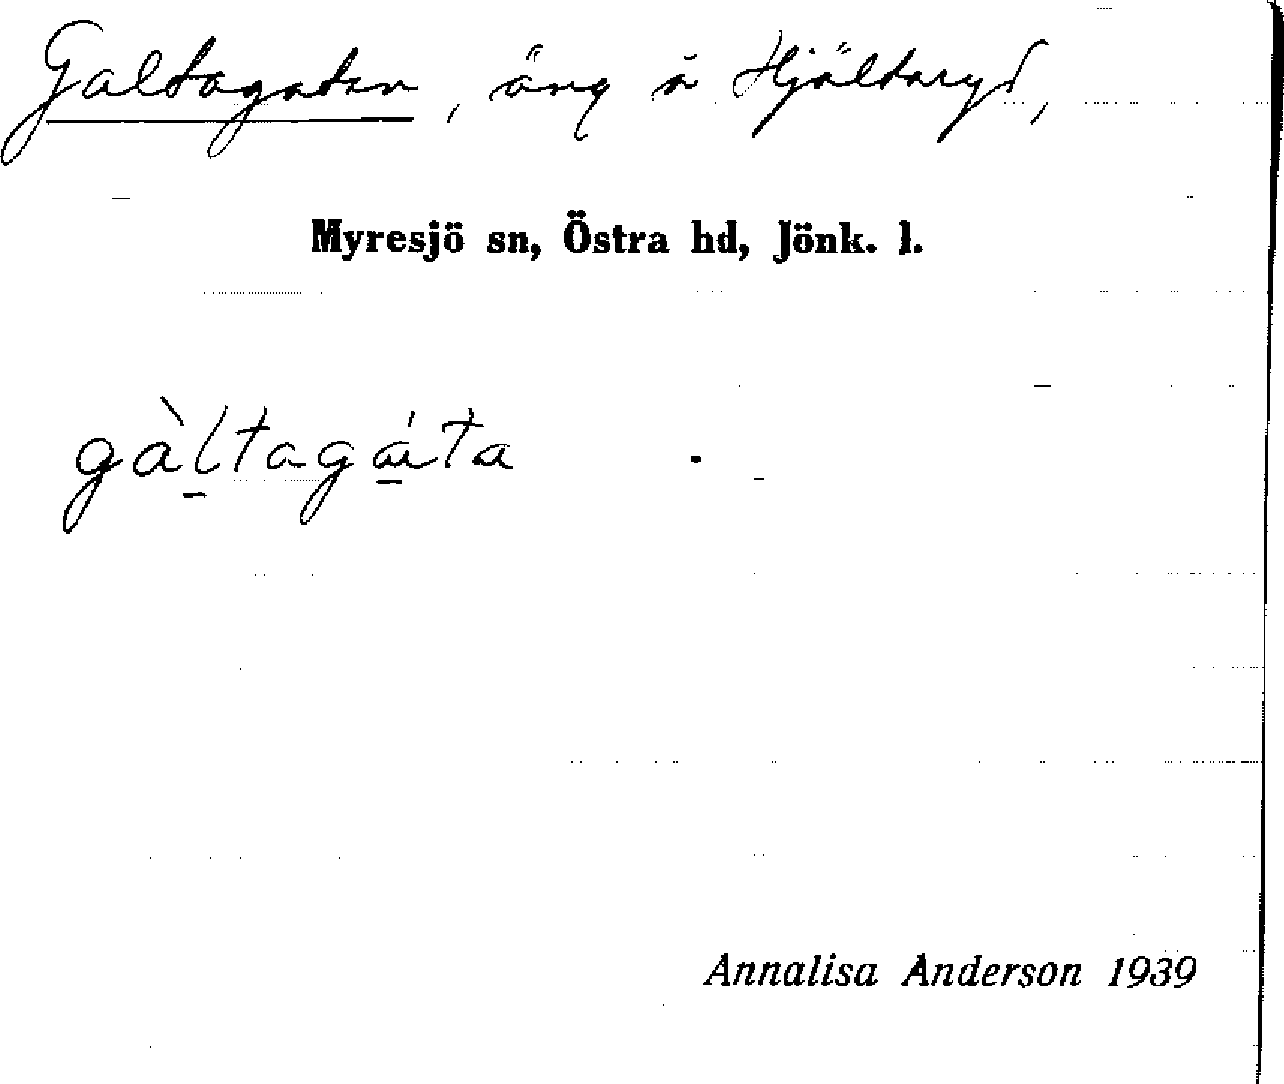 Galtagatan, äng å Hjältaryd,
Myresjö sn, Östra hd, Jönk. l.
gàltagáta
Annalisa Anderson 1939